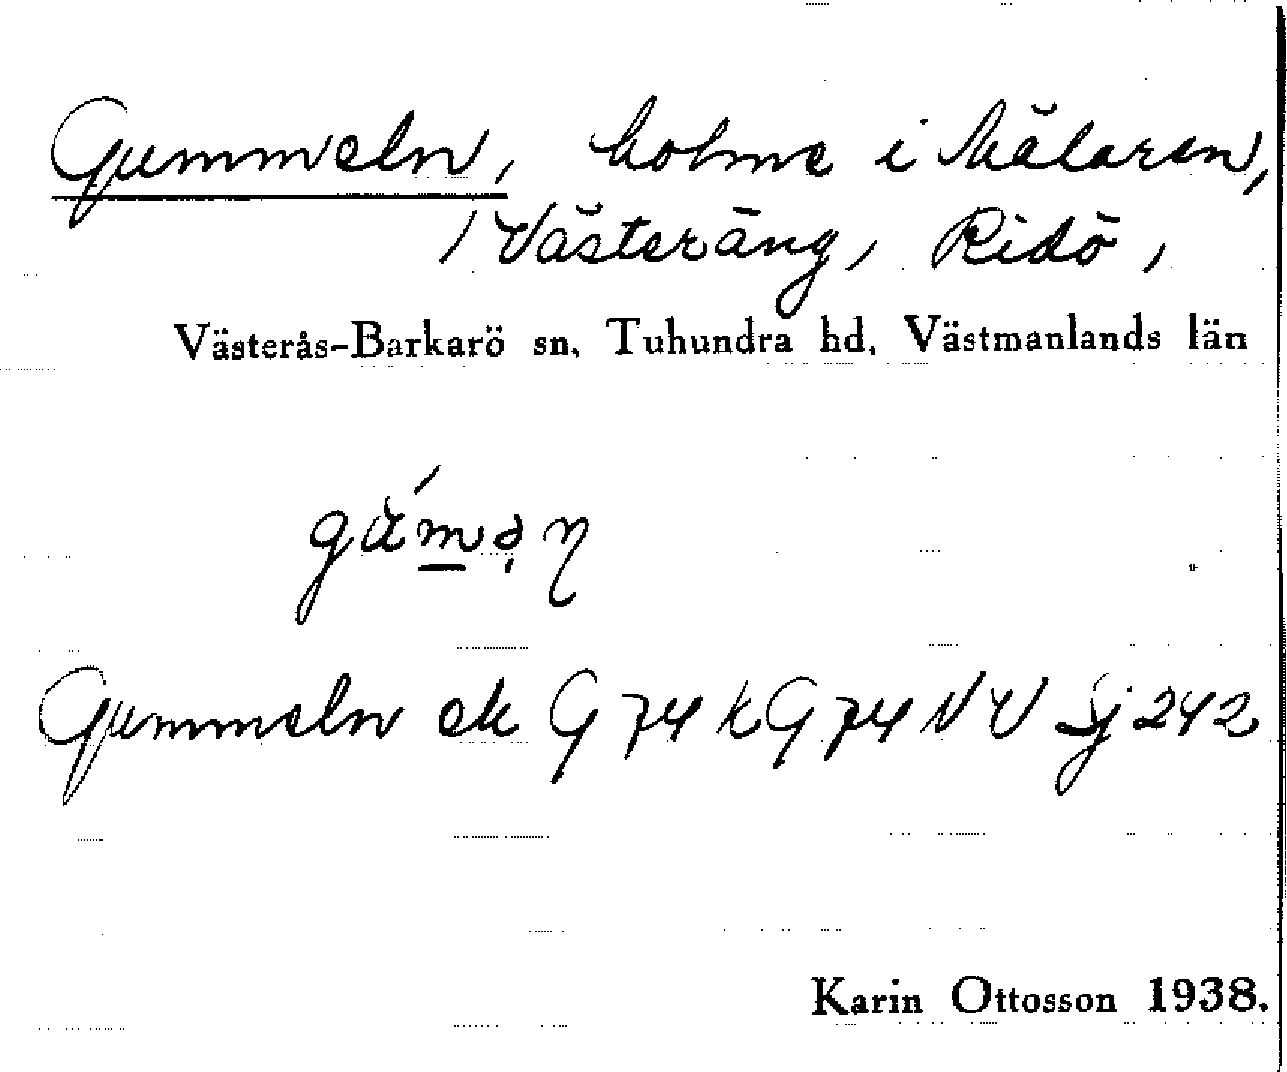 Gummeln, holme i Mälaren,
/ Västeräng, Ridö,
Västerås-Barkarö sn, Tuhundra hd, Västmanlands län
Gummeln ek G 74 k G 74 NV Sj 242
Karin Ottosson 1938.